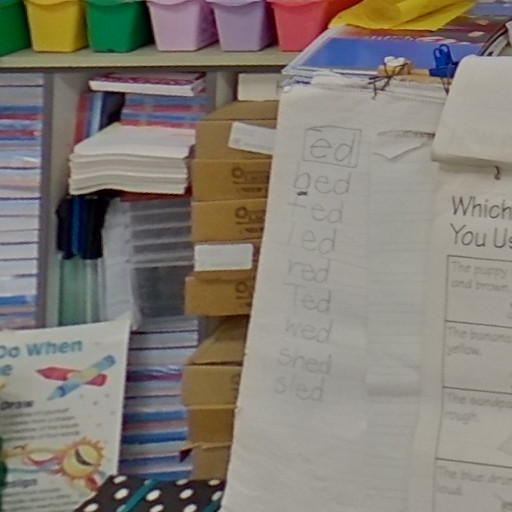 ed
bed
fed
led
red
Ted
wed
shed
sled
Which
You Us
The puppy
and brown.
The banana
yellow.
The sandpap
rough.
The blue drum
loud.
Do When
e
Draw
sign